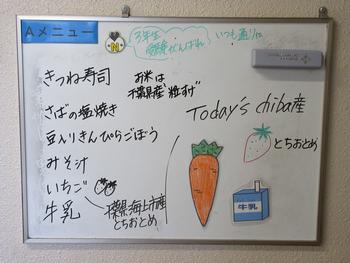 Aメニュー
3年生
受験がんばれ
いつも通りに
きつね寿司
お米は
千葉県産"粒すけ"
さばの塩焼き
豆入りきんぴらごぼう
みそ汁
いちご
牛乳
千葉県海上市産
とちおとめ
Today's chiba産
とちおとめ
牛乳